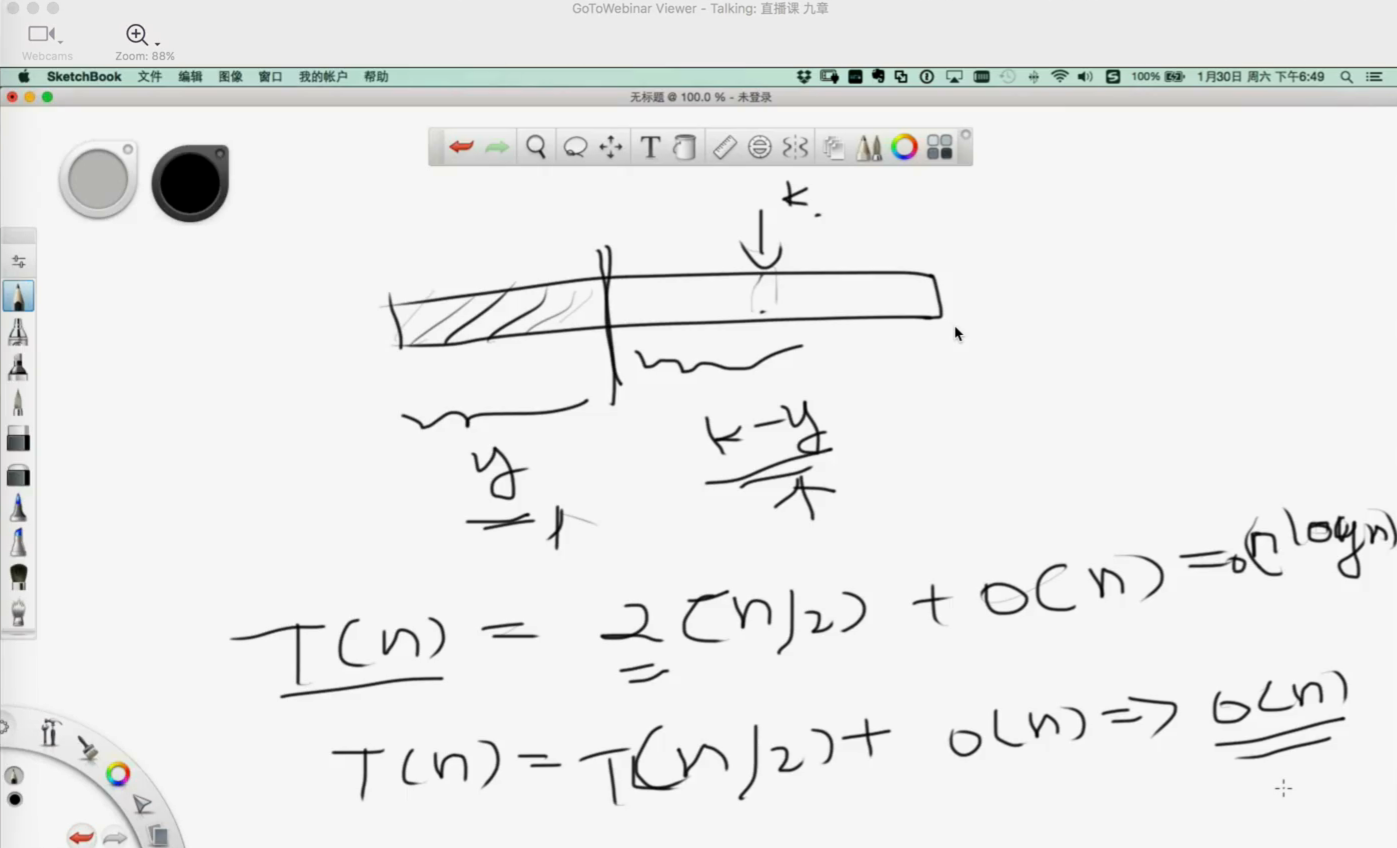 GoToWebinar Viewer - Talking: 直播课 九章
Webcams
Zoom: 88%
SketchBook 文件 编辑 图像 窗口 我的帐户 帮助 100% 1月30日 周六 下午6:49
无标题 @ 100.0 % - 未登录
T
k.
y
k-y
T(n) = 2(n/2) + O(n) = O(n logn)
T(n) = T(n/2) + O(n) => O(n)